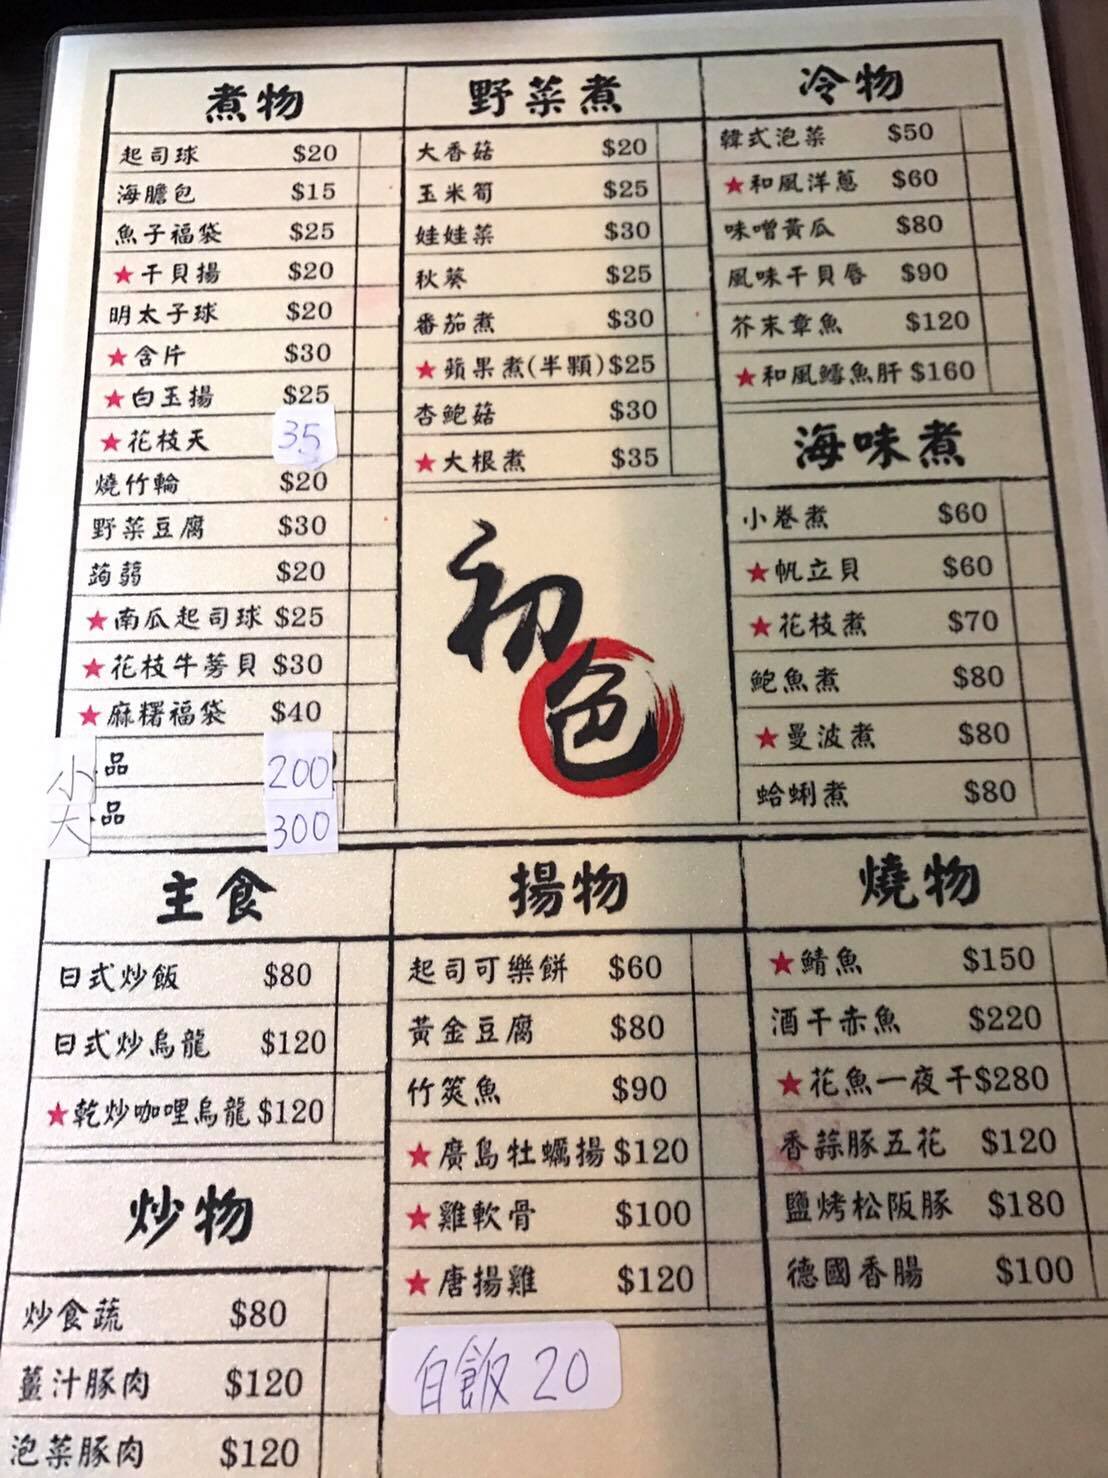 煮物
起司球 $20
海膽包 $15
魚子福袋 $25
★干貝揚 $20
明太子球 $20
★含片 $30
★白玉揚 $25
★花枝天 35
燒竹輪 $20
野菜豆腐 $30
蒟蒻 $20
★南瓜起司球 $25
★花枝牛蒡貝 $30
★麻糬福袋 $40
小 品 200
大 品 300
野菜煮
大香菇 $20
玉米筍 $25
娃娃菜 $30
秋葵 $25
番茄煮 $30
★蘋果煮(半顆) $25
杏鮑菇 $30
★大根煮 $35
初色
冷物
韓式泡菜 $50
★和風洋蔥 $60
味噌黃瓜 $80
風味干貝唇 $90
芥末章魚 $120
★和風鱈魚肝 $160
海味煮
小卷煮 $60
★帆立貝 $60
★花枝煮 $70
鮑魚煮 $80
★曼波煮 $80
蛤蜊煮 $80
主食
日式炒飯 $80
日式炒烏龍 $120
★乾炒咖哩烏龍 $120
炒物
炒食蔬 $80
薑汁豚肉 $120
泡菜豚肉 $120
揚物
起司可樂餅 $60
黃金豆腐 $80
竹筴魚 $90
★廣島牡蠣揚 $120
★雞軟骨 $100
★唐揚雞 $120
白飯 20
燒物
★鯖魚 $150
酒干赤魚 $220
★花魚一夜干 $280
香蒜豚五花 $120
鹽烤松阪豚 $180
德國香腸 $100